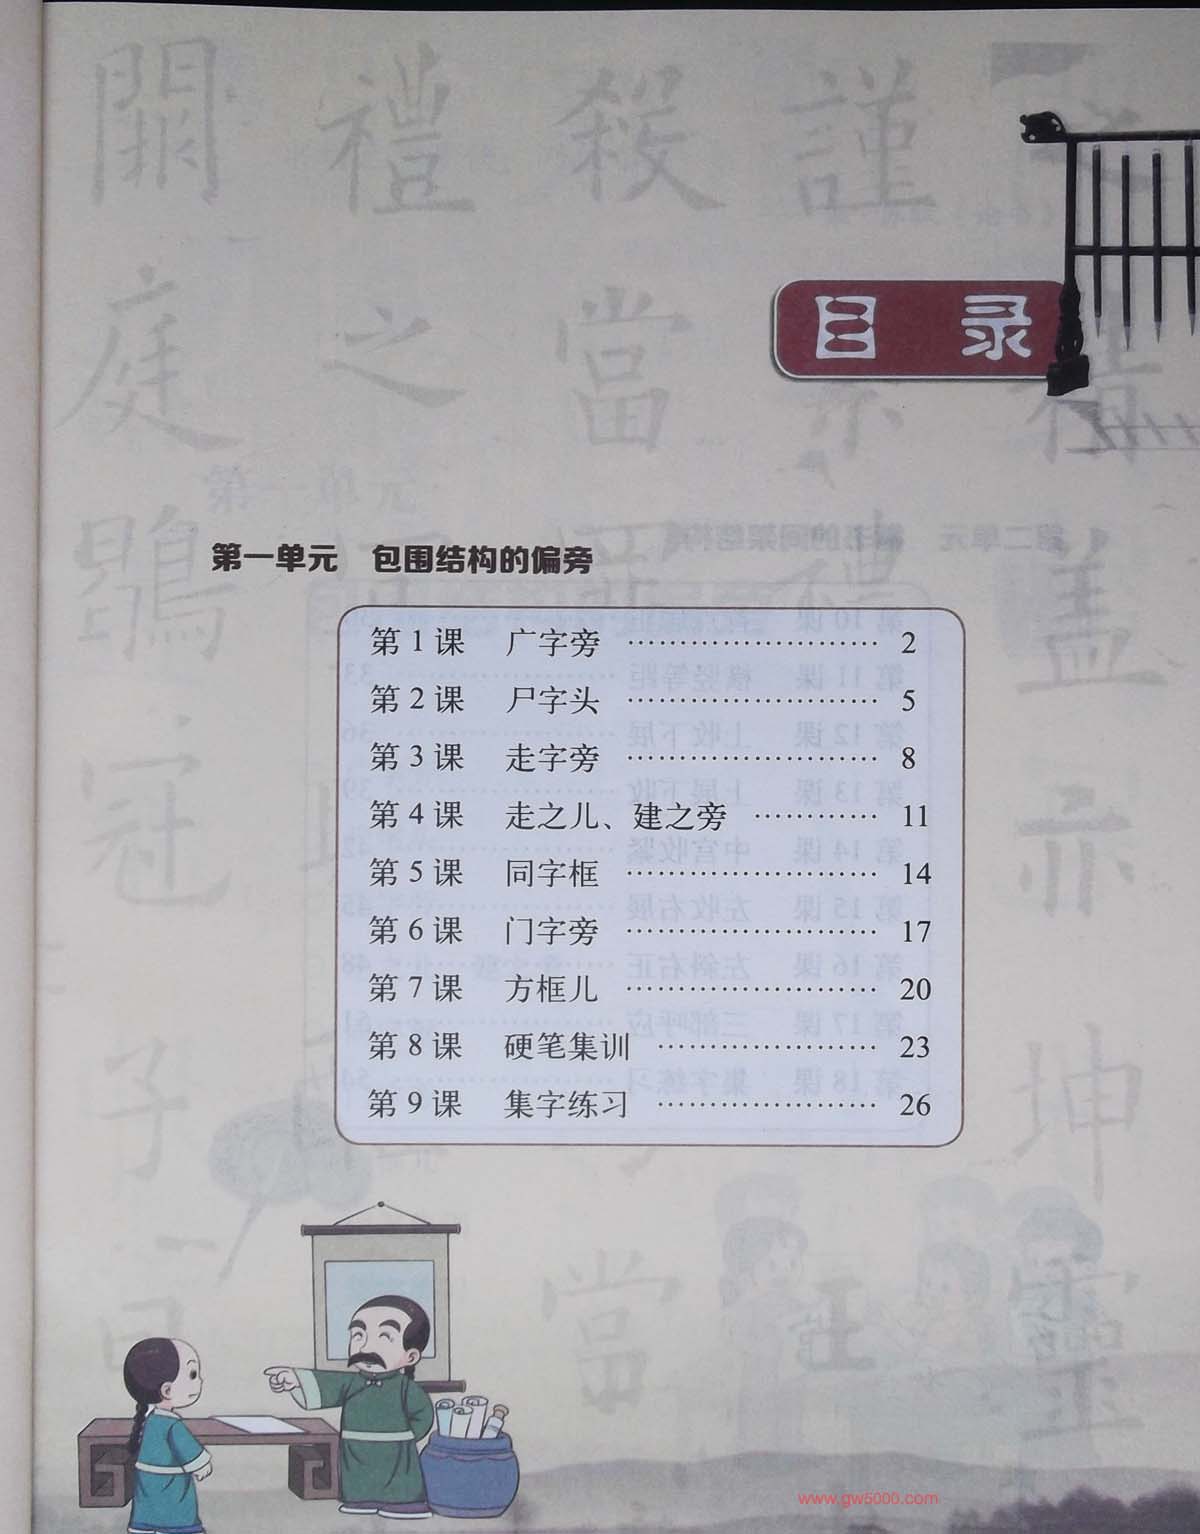 目 录
第一单元 包围结构的偏旁
第 1 课 广字旁 …………………… 2
第 2 课 尸字头 …………………… 5
第 3 课 走字旁 …………………… 8
第 4 课 走之儿、建之旁 ………… 11
第 5 课 同字框 …………………… 14
第 6 课 门字旁 …………………… 17
第 7 课 方框儿 …………………… 20
第 8 课 硬笔集训 ………………… 23
第 9 课 集字练习 ………………… 26
www.gw5000.com